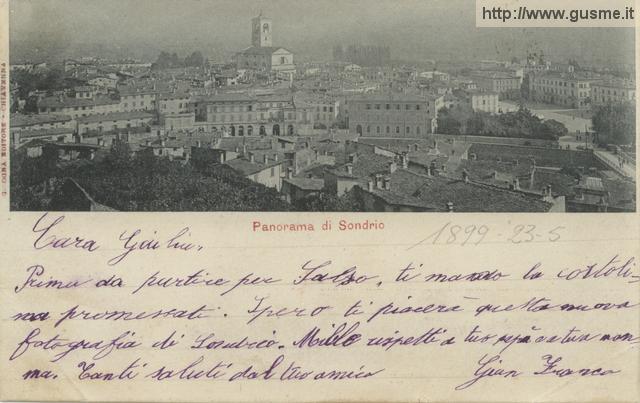 http://www.gusme.it
Panorama di Sondrio
1899-23-5
Cara Giulia.
Prima da partire per Salso, ti mando la cartoli-
na promessati. Spero ti piacerà questa nuova
fotografia di Sondrio. Mille rispetti a tuo papà a tua mam-
ma. Tanti saluti dal tuo amico
Gian Franco